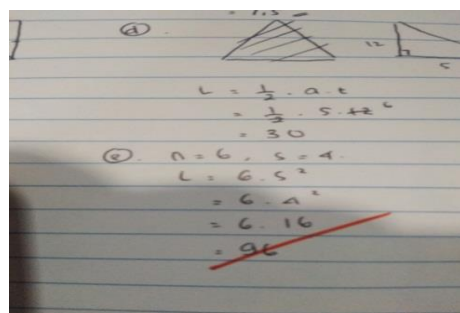 = 7,5
d.
12
5
L = 1/2 . a . t
= 1/2 . 5 . 12 6
= 30
e. n = 6, s = 4.
L = 6 . s²
= 6 . 4²
= 6 . 16
= 96